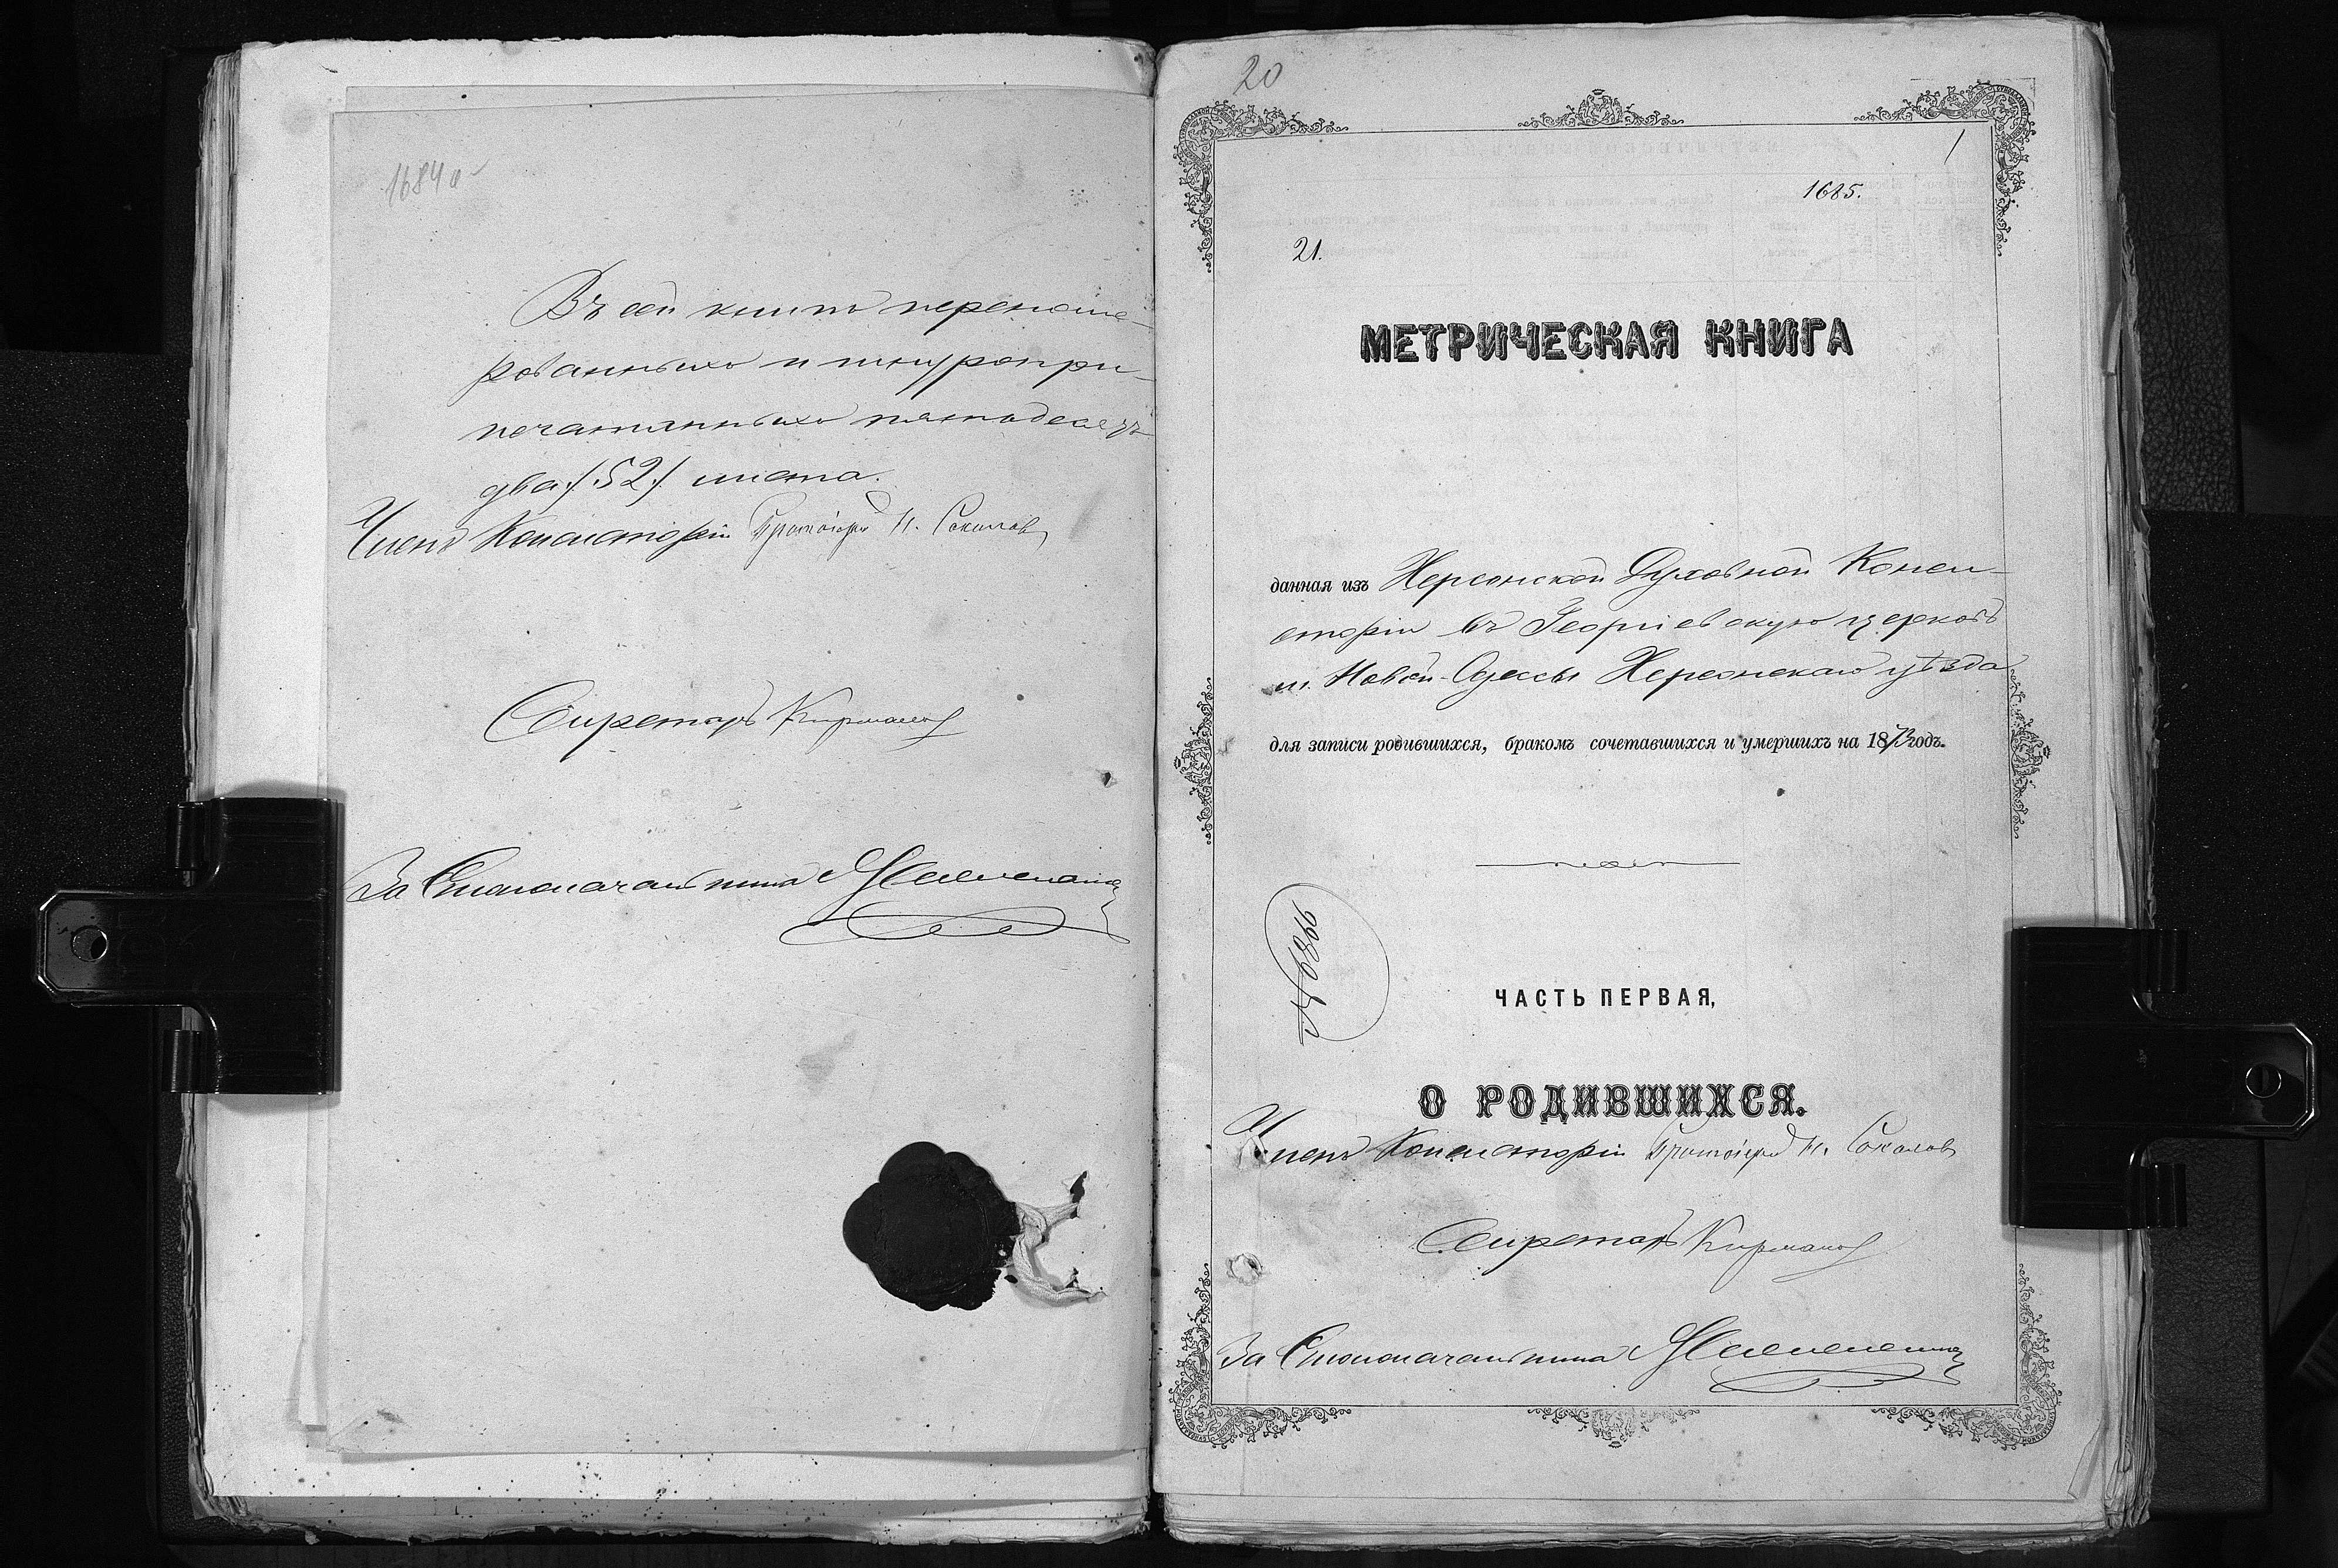 1684а
Въ сей книгѣ перенуме-
рованныхъ и шнуропри-
печатанныхъ пятьдесятъ
два /:52:/ листа.
Членъ Консисторіи Протоіерей Н. Соколовъ
Секретарь
За Столоначальника
20
1
1685.
21.
МЕТРИЧЕСКАЯ КНИГА
данная изъ Херсонской Духовной Конси-
сторіи въ Георгіевскую церковь
м. Новой-Одессы Херсонскаго уѣзда
для записи родившихся, бракомъ сочетавшихся и умершихъ на 1873 годъ.
ЧАСТЬ ПЕРВАЯ,
О РОДИВШИХСЯ.
Членъ Консисторіи Протоіерей Н. Соколовъ
Секретарь
За Столоначальника